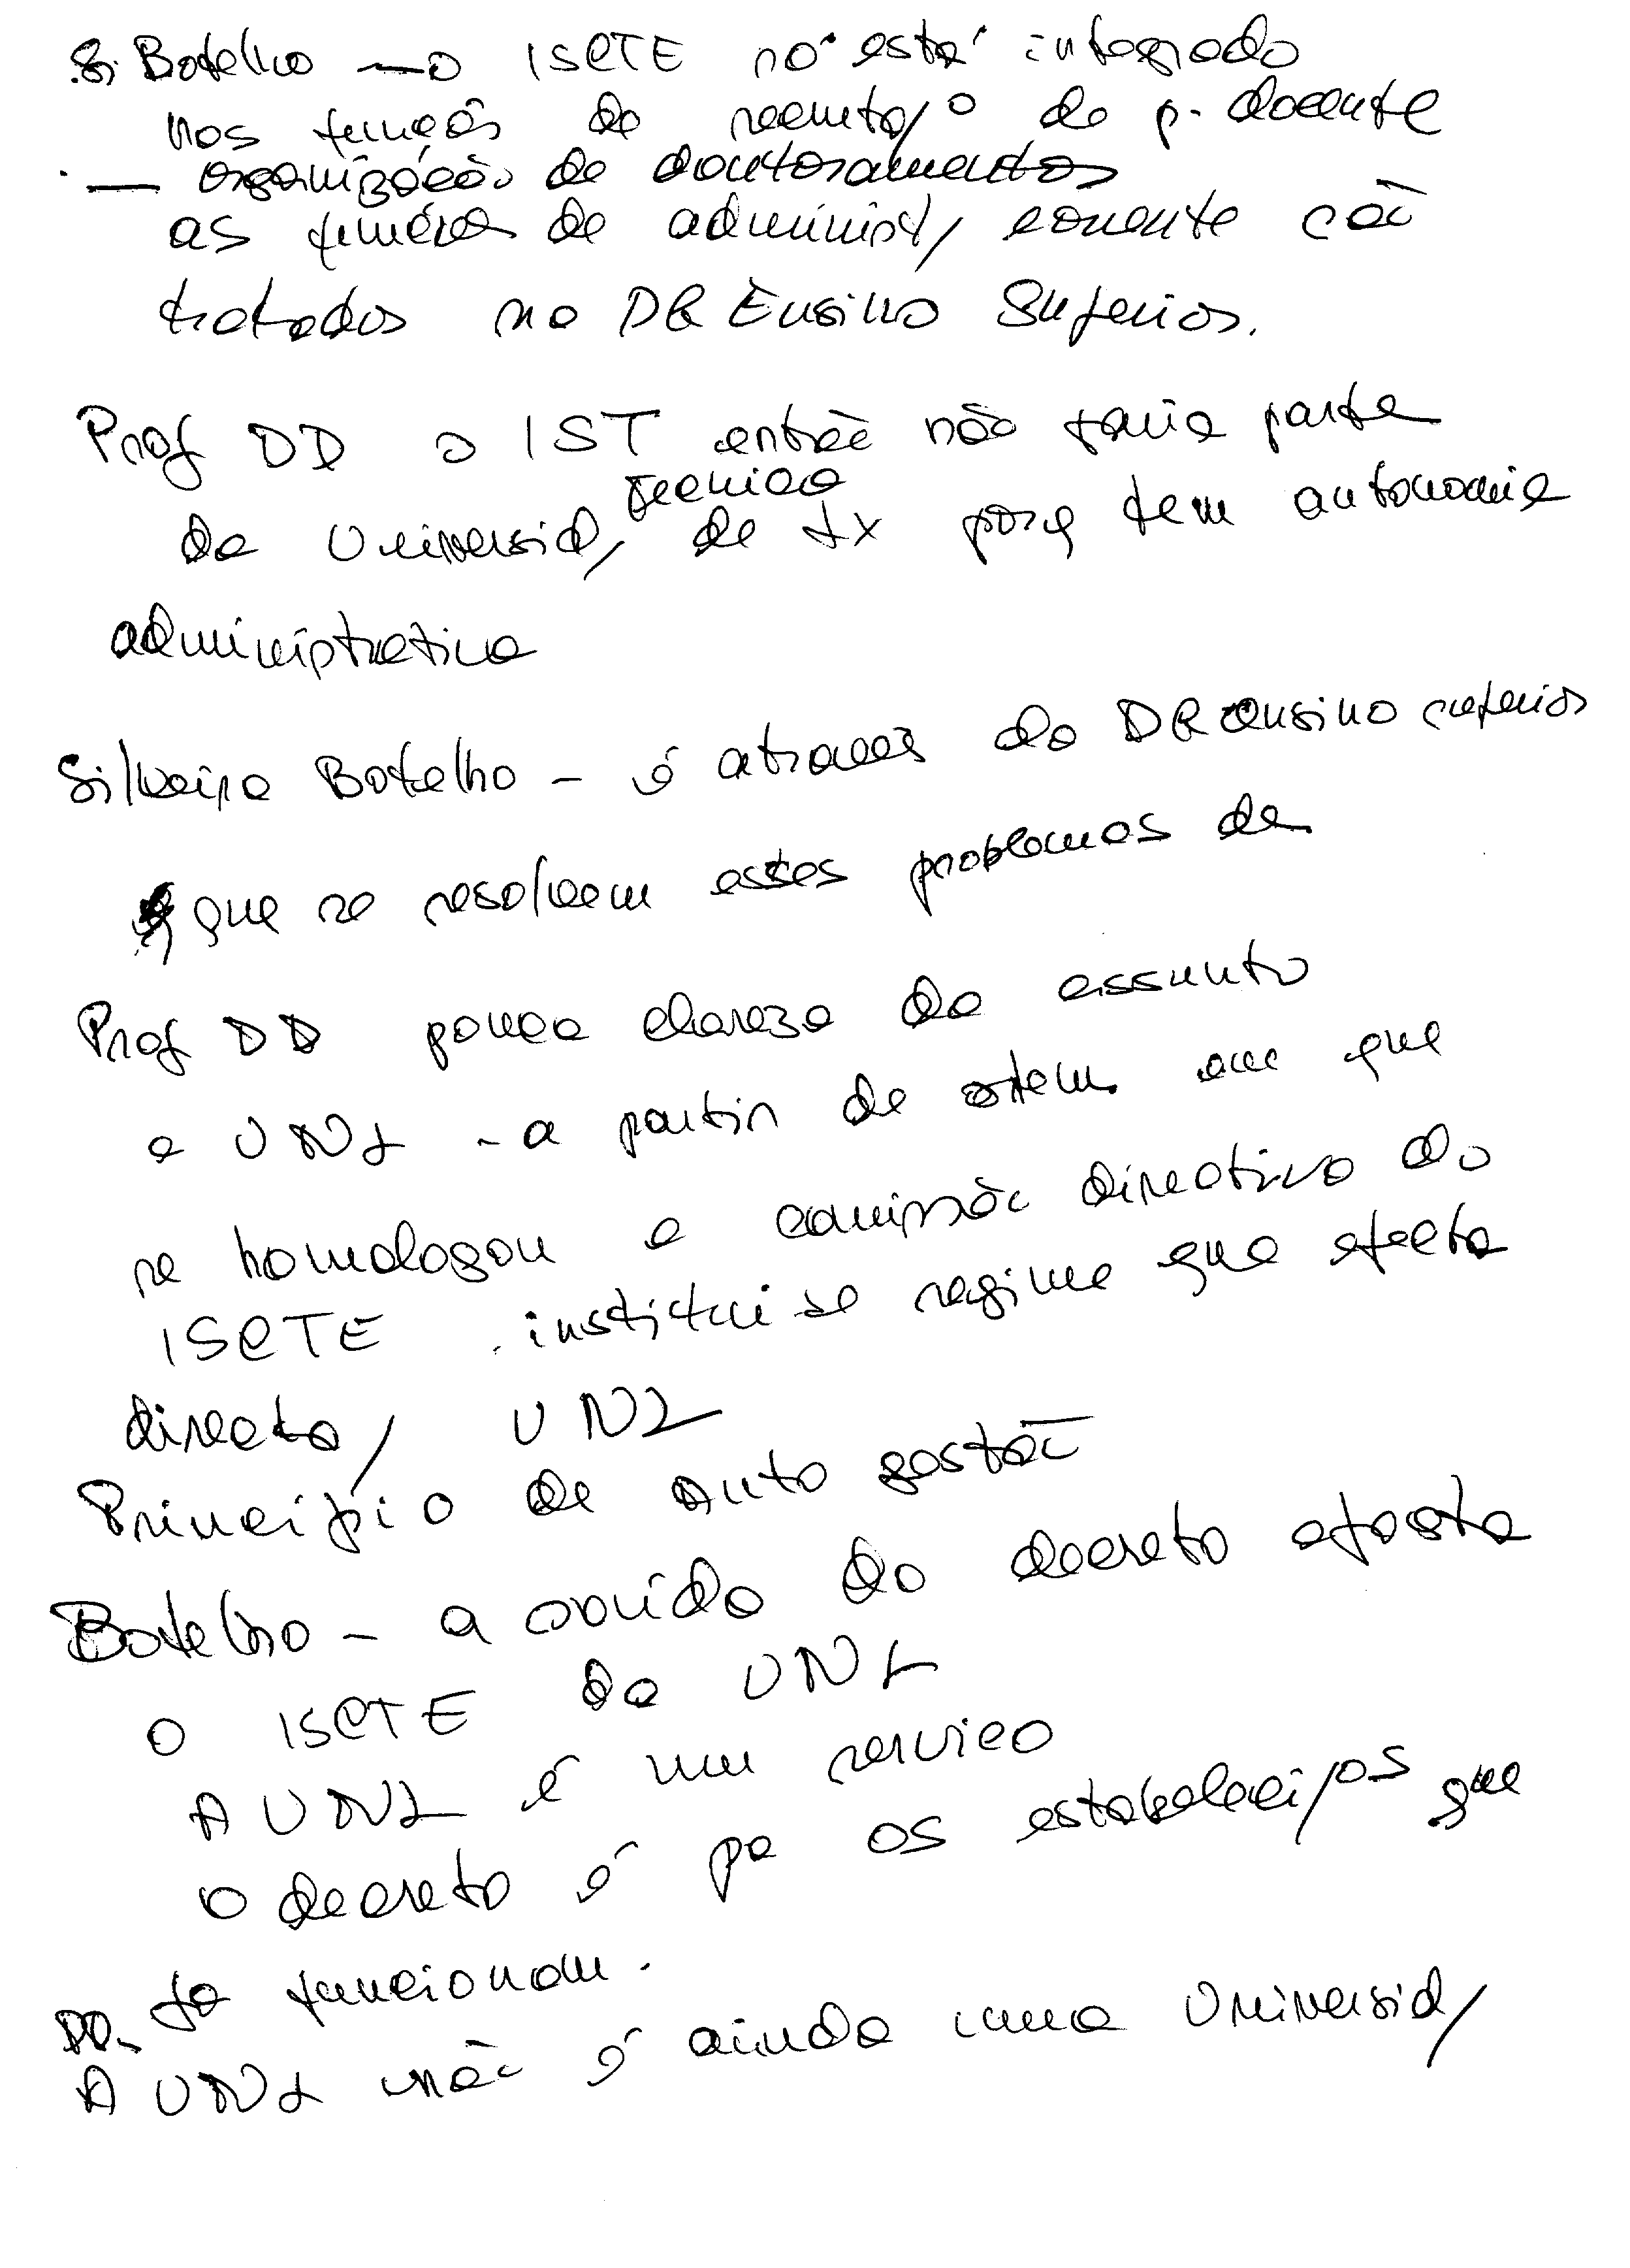 Si Botelho —o ISCTE nº está integrado
nos funções de recruta/º do p. docente
— organização de doutoramentos
as funções de administ/ corrente são
tratados na DG Ensino Superior.
Prof DD o IST então não fazia parte
da Universid/ Técnica de Lx porq tem autonomia
administrativa
Silveira Botelho - é através do DG ensino superior
que se resolvem estes problemas de
Prof DD pouca clareza do assunto
a UNL - a partir de ontem em que
se homologou a comissão directiva do
ISCTE institui se regime que afecta
directa/ UNL
Princípio de Auto gestão
Botelho - a ouvido do decreto afasta
o ISCTE da UNL
A UNL é um serviço
o decreto é pª os estabeleci/os que
DD. já funcionam.
A UNL não é ainda uma Universid/